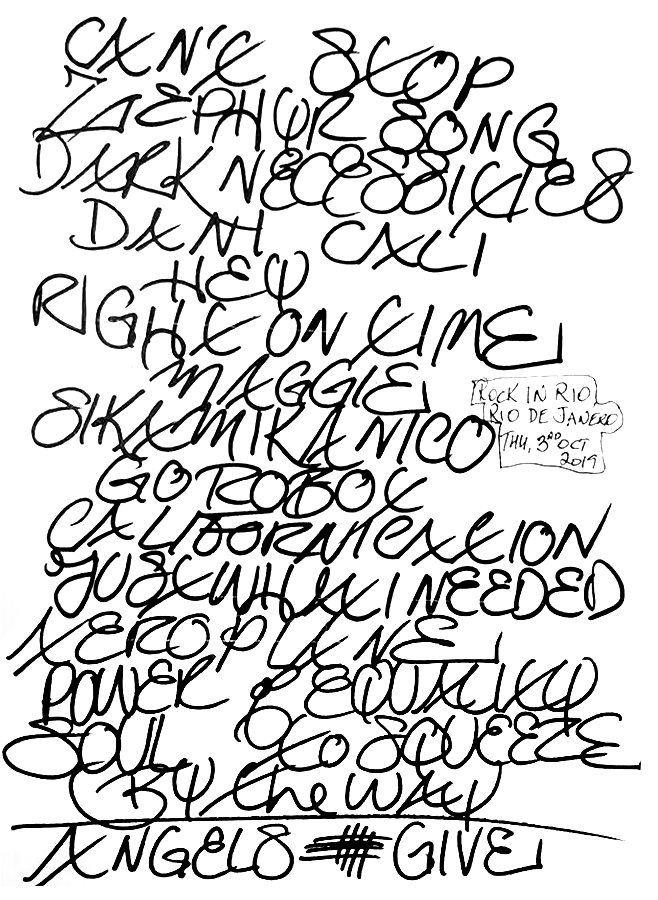 CAN'T STOP
ZEPHYR SONG
DARK NECESSITIES
DANI CALI
HEY
RIGHT ON TIME
MAGGIE
SIKAMIKANICO
GO ROBOT
CALIFORNICATION
JUST WHAT I NEEDED
AEROPLANE
POWER OF EQUALITY
SOUL TO SQUEEZE
BY the WAY
ANGELS GIVE
ROCK IN RIO
RIO DE JANERO
THU, 3RD OCT
2019